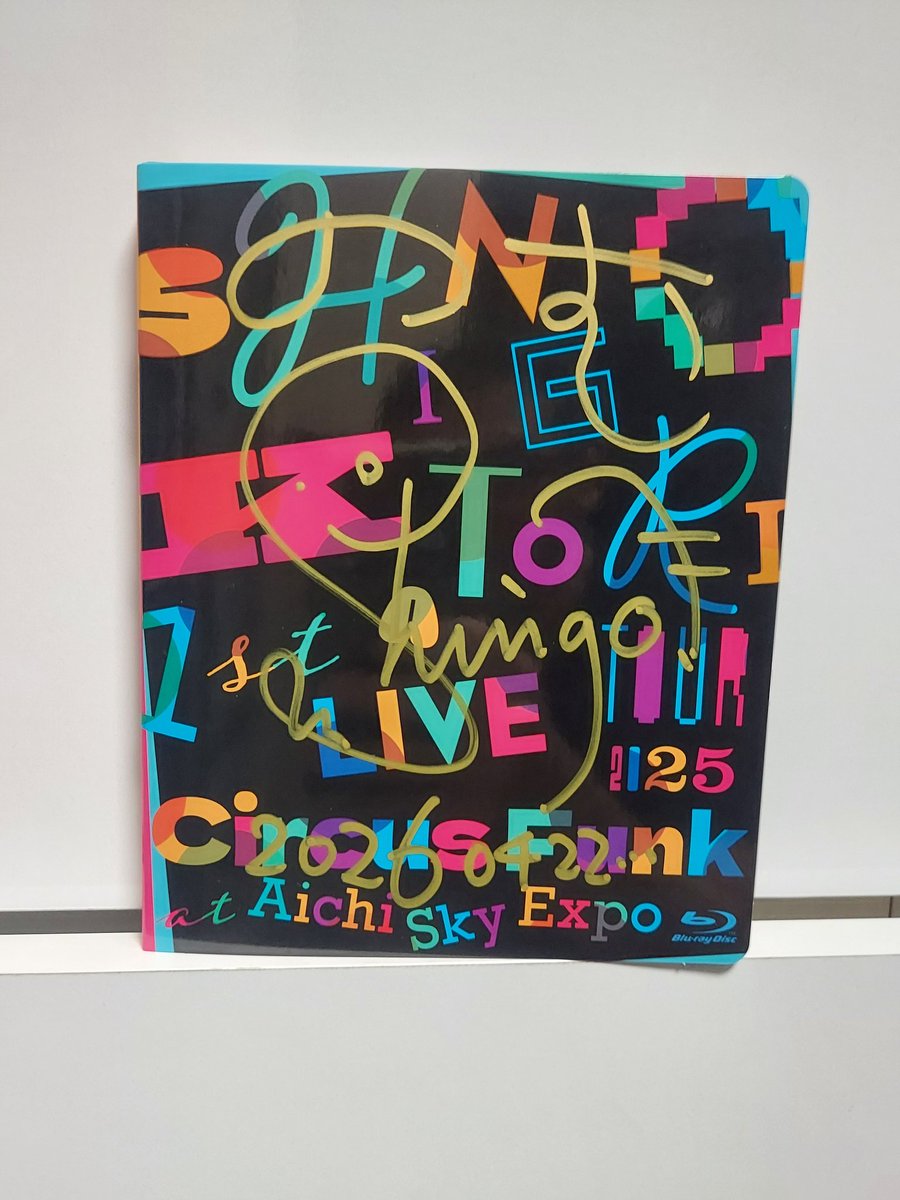 SHINGO
KATORI
1st LIVE TOUR
2025
Circus Funk
at Aichi Sky Expo
Blu-ray Disc
hingo
2026 04 22